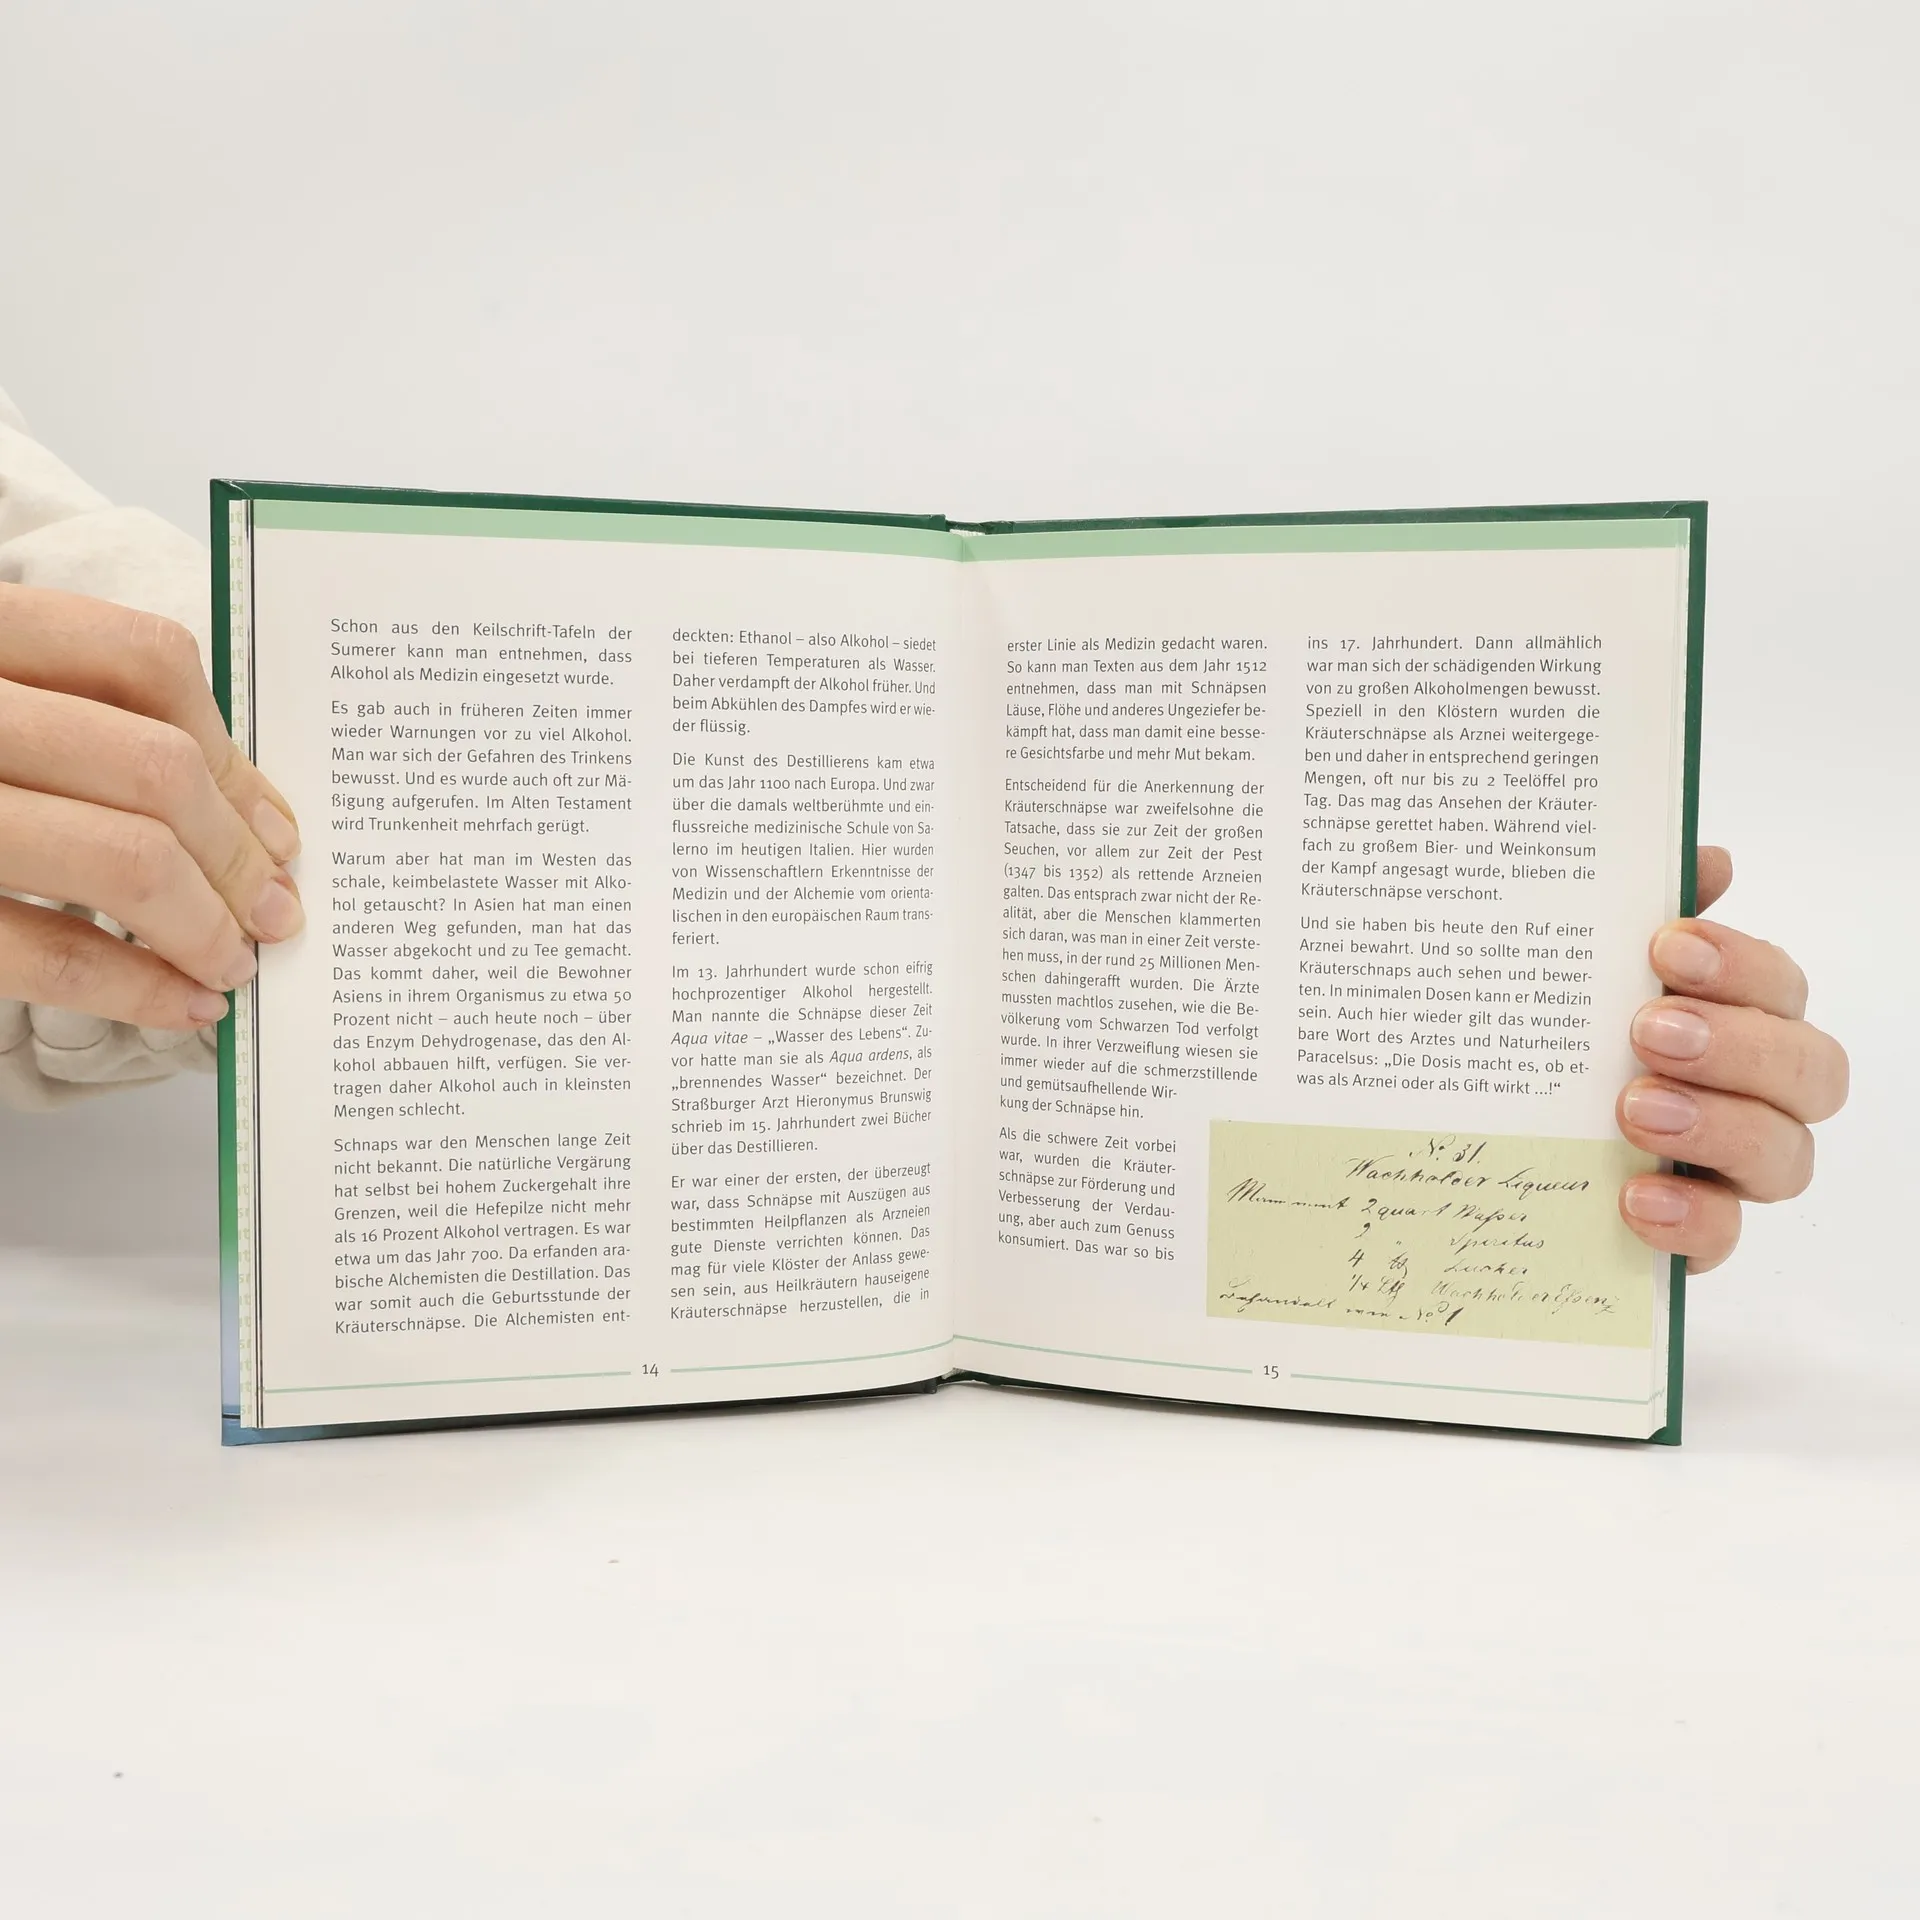 Schon aus den Keilschrift-Tafeln der
Sumerer kann man entnehmen, dass
Alkohol als Medizin eingesetzt wurde.
Es gab auch in früheren Zeiten immer
wieder Warnungen vor zu viel Alkohol.
Man war sich der Gefahren des Trinkens
bewusst. Und es wurde auch oft zur Mä-
ßigung aufgerufen. Im Alten Testament
wird Trunkenheit mehrfach gerügt.
Warum aber hat man im Westen das
schale, keimbelastete Wasser mit Alko-
hol getauscht? In Asien hat man einen
anderen Weg gefunden, man hat das
Wasser abgekocht und zu Tee gemacht.
Das kommt daher, weil die Bewohner
Asiens in ihrem Organismus zu etwa 50
Prozent nicht – auch heute noch – über
das Enzym Dehydrogenase, das den Al-
kohol abbauen hilft, verfügen. Sie ver-
tragen daher Alkohol auch in kleinsten
Mengen schlecht.
Schnaps war den Menschen lange Zeit
nicht bekannt. Die natürliche Vergärung
hat selbst bei hohem Zuckergehalt ihre
Grenzen, weil die Hefepilze nicht mehr
als 16 Prozent Alkohol vertragen. Es war
etwa um das Jahr 700. Da erfanden ara-
bische Alchemisten die Destillation. Das
war somit auch die Geburtsstunde der
Kräuterschnäpse. Die Alchemisten ent-
deckten: Ethanol – also Alkohol – siedet
bei tieferen Temperaturen als Wasser.
Daher verdampft der Alkohol früher. Und
beim Abkühlen des Dampfes wird er wie-
der flüssig.
Die Kunst des Destillierens kam etwa
um das Jahr 1100 nach Europa. Und zwar
über die damals weltberühmte und ein-
flussreiche medizinische Schule von Sa-
lerno im heutigen Italien. Hier wurden
von Wissenschaftlern Erkenntnisse der
Medizin und der Alchemie vom orienta-
lischen in den europäischen Raum trans-
feriert.
Im 13. Jahrhundert wurde schon eifrig
hochprozentiger Alkohol hergestellt.
Man nannte die Schnäpse dieser Zeit
Aqua vitae – „Wasser des Lebens“. Zu-
vor hatte man sie als Aqua ardens, als
„brennendes Wasser“ bezeichnet. Der
Straßburger Arzt Hieronymus Brunswig
schrieb im 15. Jahrhundert zwei Bücher
über das Destillieren.
Er war einer der ersten, der überzeugt
war, dass Schnäpse mit Auszügen aus
bestimmten Heilpflanzen als Arzneien
gute Dienste verrichten können. Das
mag für viele Klöster der Anlass gewe-
sen sein, aus Heilkräutern hauseigene
Kräuterschnäpse herzustellen, die in
14
erster Linie als Medizin gedacht waren.
So kann man Texten aus dem Jahr 1512
entnehmen, dass man mit Schnäpsen
Läuse, Flöhe und anderes Ungeziefer be-
kämpft hat, dass man damit eine besse-
re Gesichtsfarbe und mehr Mut bekam.
Entscheidend für die Anerkennung der
Kräuterschnäpse war zweifelsohne die
Tatsache, dass sie zur Zeit der großen
Seuchen, vor allem zur Zeit der Pest
(1347 bis 1352) als rettende Arzneien
galten. Das entsprach zwar nicht der Re-
alität, aber die Menschen klammerten
sich daran, was man in einer Zeit verste-
hen muss, in der rund 25 Millionen Men-
schen dahingerafft wurden. Die Ärzte
mussten machtlos zusehen, wie die Be-
völkerung vom Schwarzen Tod verfolgt
wurde. In ihrer Verzweiflung wiesen sie
immer wieder auf die schmerzstillende
und gemütsaufhellende Wir-
kung der Schnäpse hin.
Als die schwere Zeit vorbei
war, wurden die Kräuter-
schnäpse zur Förderung und
Verbesserung der Verdau-
ung, aber auch zum Genuss
konsumiert. Das war so bis
ins 17. Jahrhundert. Dann allmählich
war man sich der schädigenden Wirkung
von zu großen Alkoholmengen bewusst.
Speziell in den Klöstern wurden die
Kräuterschnäpse als Arznei weitergege-
ben und daher in entsprechend geringen
Mengen, oft nur bis zu 2 Teelöffel pro
Tag. Das mag das Ansehen der Kräuter-
schnäpse gerettet haben. Während viel-
fach zu großem Bier- und Weinkonsum
der Kampf angesagt wurde, blieben die
Kräuterschnäpse verschont.
Und sie haben bis heute den Ruf einer
Arznei bewahrt. Und so sollte man den
Kräuterschnaps auch sehen und bewer-
ten. In minimalen Dosen kann er Medizin
sein. Auch hier wieder gilt das wunder-
bare Wort des Arztes und Naturheilers
Paracelsus: „Die Dosis macht es, ob et-
was als Arznei oder als Gift wirkt ...!“
No. 31.
Wachholder Liqueur
2 quart Waßer
2 " Spiritus
4 Zucker
1/4 Wachholder Eßenz
No 1
15